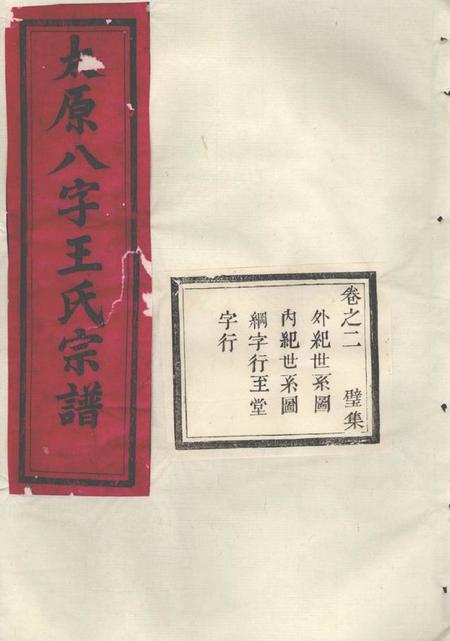 太原八字王氏宗譜
卷之二 璧集
外紀世系圖
內紀世系圖
綱字行至堂
字行